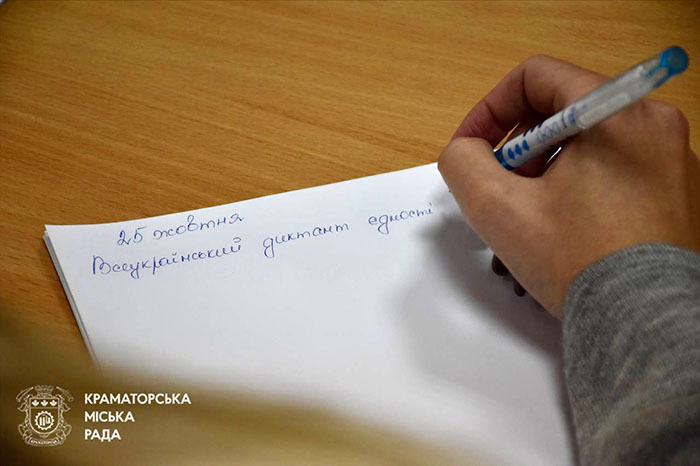 25 жовтня
Всеукраїнський диктант єдності
КРАМАТОРСЬКА
МІСЬКА
РАДА